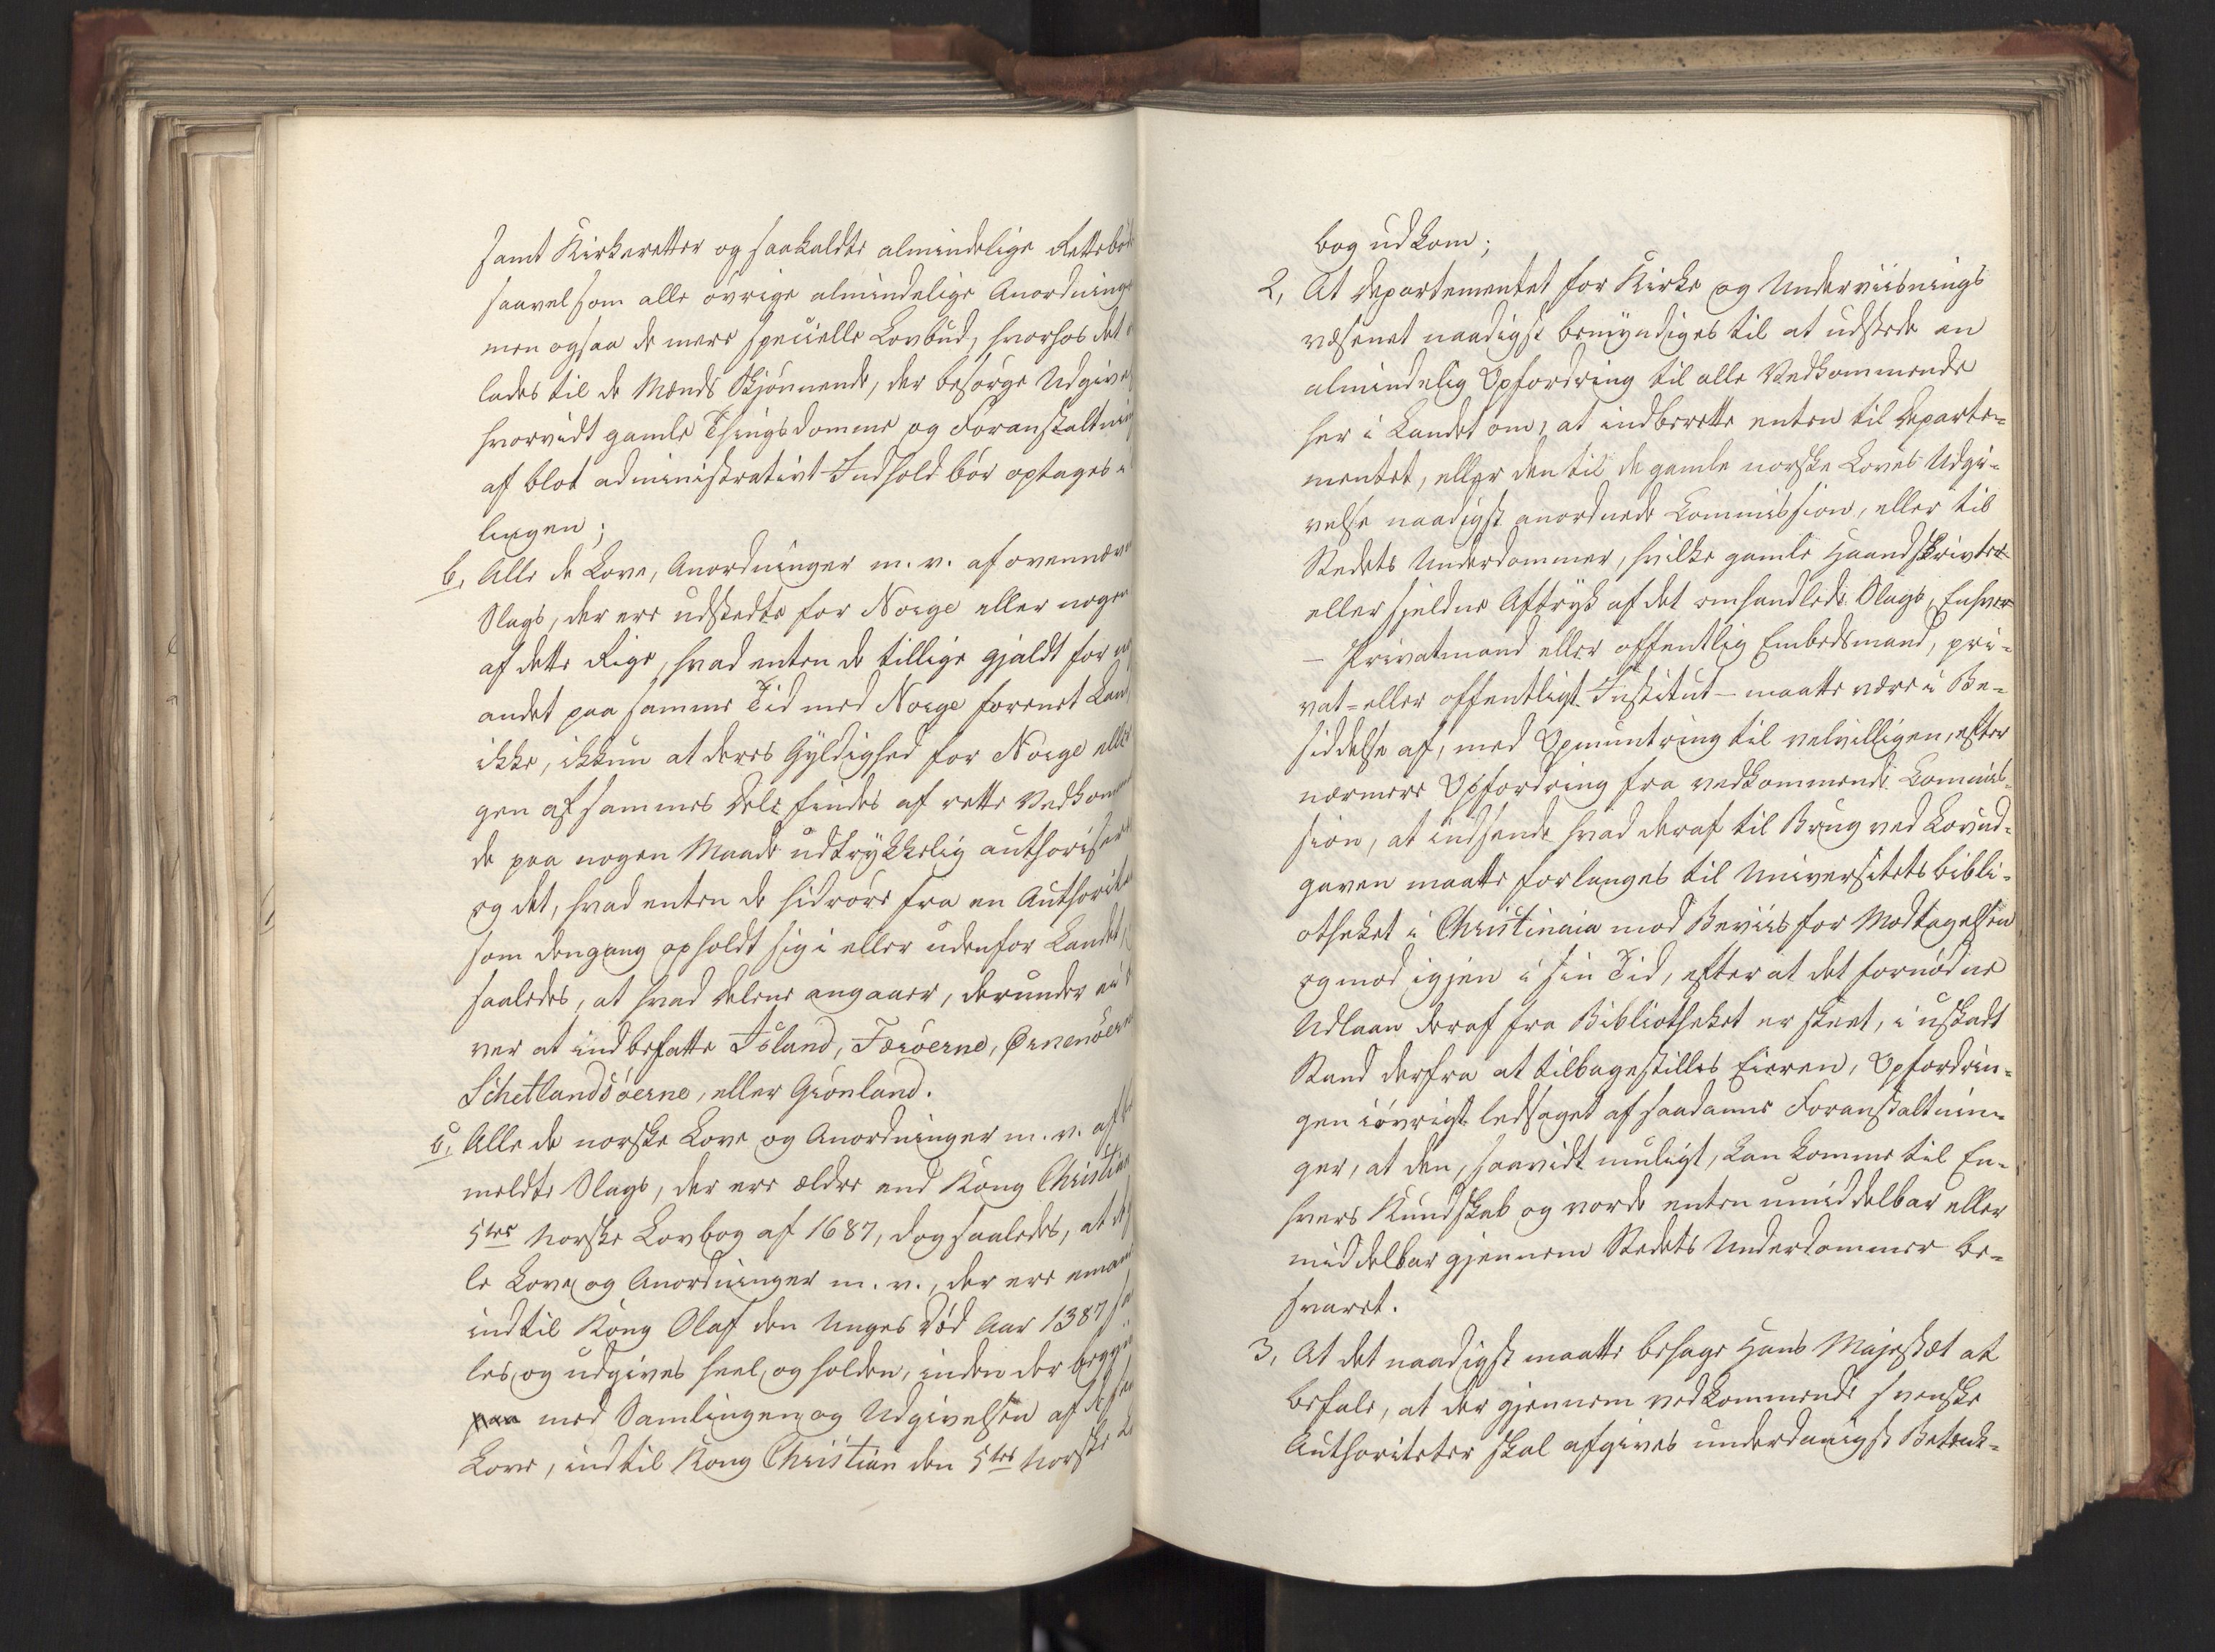 samt Kirkeretter og saakaldte almindelige Rettebød
saavelsom alle øvrige almindelige Anordning
men ogsaa de mere specielle Lovbud, hvorhos det
lades til de Mænds Skjønnende, der besørge Udgive
hvorvidt gamle Thingsdomme og Foranstaltnin
af blot administrativt Indhold bør optages i
lingen;
b, Alle de Love, Anordninger m. v. af ovennævn
Slags, der ere udstedte for Norge eller nogen
af dette Rige, hvad enten de tillige gjaldt for
andet paa samme Tid med Norge forenet Land
ikke, ikkun at deres Gyldighed for Norge eller
gen af sammes Dele findes af rette Vedkomm
de paa nogen Maade udtrykkelig authoriser
og det, hvad enten de hidrøre fra en Authorite
som dengang opholdt sig i eller udenfor Landet,
saaledes, at hvad Delene angaaer, derunder
ver at indbefatte Island, Færøerne, Ørnenøern
Schetlandsøerne, eller Grønland.
c, Alle de norske Love og Anordninger m. v. af
meldte Slags, der ere ældre end Kong Christian
5tes Norske Lovbog af 1687, dog saaledes, at de
le Love og Anordninger m. v., der ere eman
indtil Kong Olaf den Unges Død Aar 1387 sa
les og udgives heel og holden, inden der begyn
paa med Samlingen og Udgivelsen af de
Love, indtil Kong Christian den 5tes Norske L
bog udkom;
2, At Departementet for Kirke og Underviisnings
væsenet naadigst bemyndiges til at udstede en
almindelig Opfordring til alle Vedkommende
her i Landet om, at indberette enten til Departe-
mentet, eller den til de gamle norske Loves Udgi-
velse naadigst anordnede Commission, eller til
Stedets Underdommer, hvilke gamle Haandskrivter
eller sjeldne Aftryk af det omhandlede Slags, Enhver
— Privatmand eller offentlig Embedsmand, pri-
vat- eller offentligt Institut — maatte være i Be-
siddelse af, med Opmuntring til velvilligen, efter
nærmere Opfordring fra vedkommende Commis-
sion, at indsende hvad deraf til Brug ved Lovud-
gaven maatte forlanges til Universitets bibli-
otheket i Christinaia mod Beviis for Modtagelsen
og mod igjen i sin Tid, efter at det fornødne
Udlaan deraf fra Bibliotheket er skeet, i uskadt
Stand derfra at tilbagestilles Eieren, Opfordrin-
gen iøvrigt ledsaget af saadanne Foranstaltnin-
ger, at den, saavidt muligt, kan komme til En-
hvers Kundskab og vorde enten umiddelbar eller
middelbar gjennem Stedets Underdommer be-
svaret.
3, At det naadigst maatte behage Hans Majestæt at
befale, at der gjennem vedkommende svenske
Authoriteter skal afgives underdanigst Betænk-